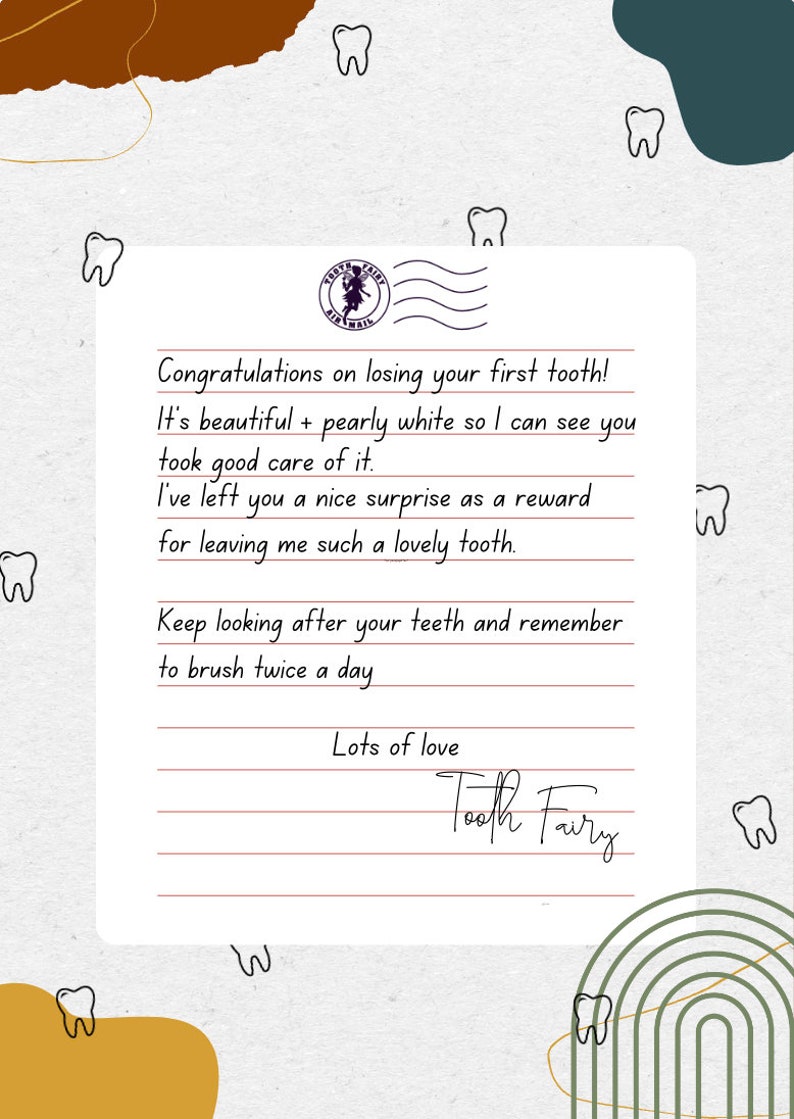 TOOTH FAIRY
AIR MAIL
Congratulations on losing your first tooth!
It's beautiful + pearly white so I can see you
took good care of it.
I've left you a nice surprise as a reward
for leaving me such a lovely tooth.
Keep looking after your teeth and remember
to brush twice a day
Lots of love
Tooth Fairy